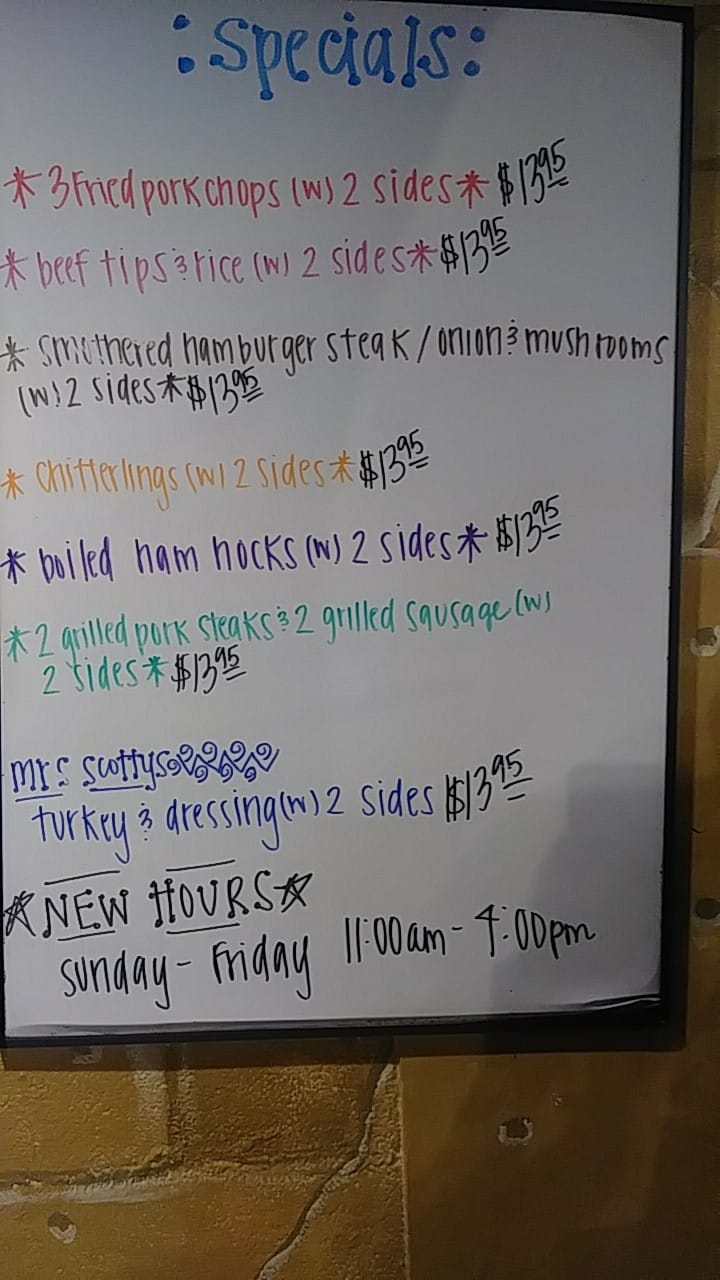 :Specials:
* 3 Fried pork chops (w) 2 sides * $13.95
* beef tips & rice (w) 2 sides * $13.95
* smothered hamburger steak / onion & mushrooms
(w) 2 sides * $13.95
* chitterlings (w) 2 sides * $13.95
* boiled ham hocks (w) 2 sides * $13.95
* 2 grilled pork steaks & 2 grilled sausage (w)
2 sides * $13.95
mrs scottys
turkey & dressing (w) 2 sides $13.95
☆ NEW HOURS ☆
sunday - Friday 11:00am - 4:00pm